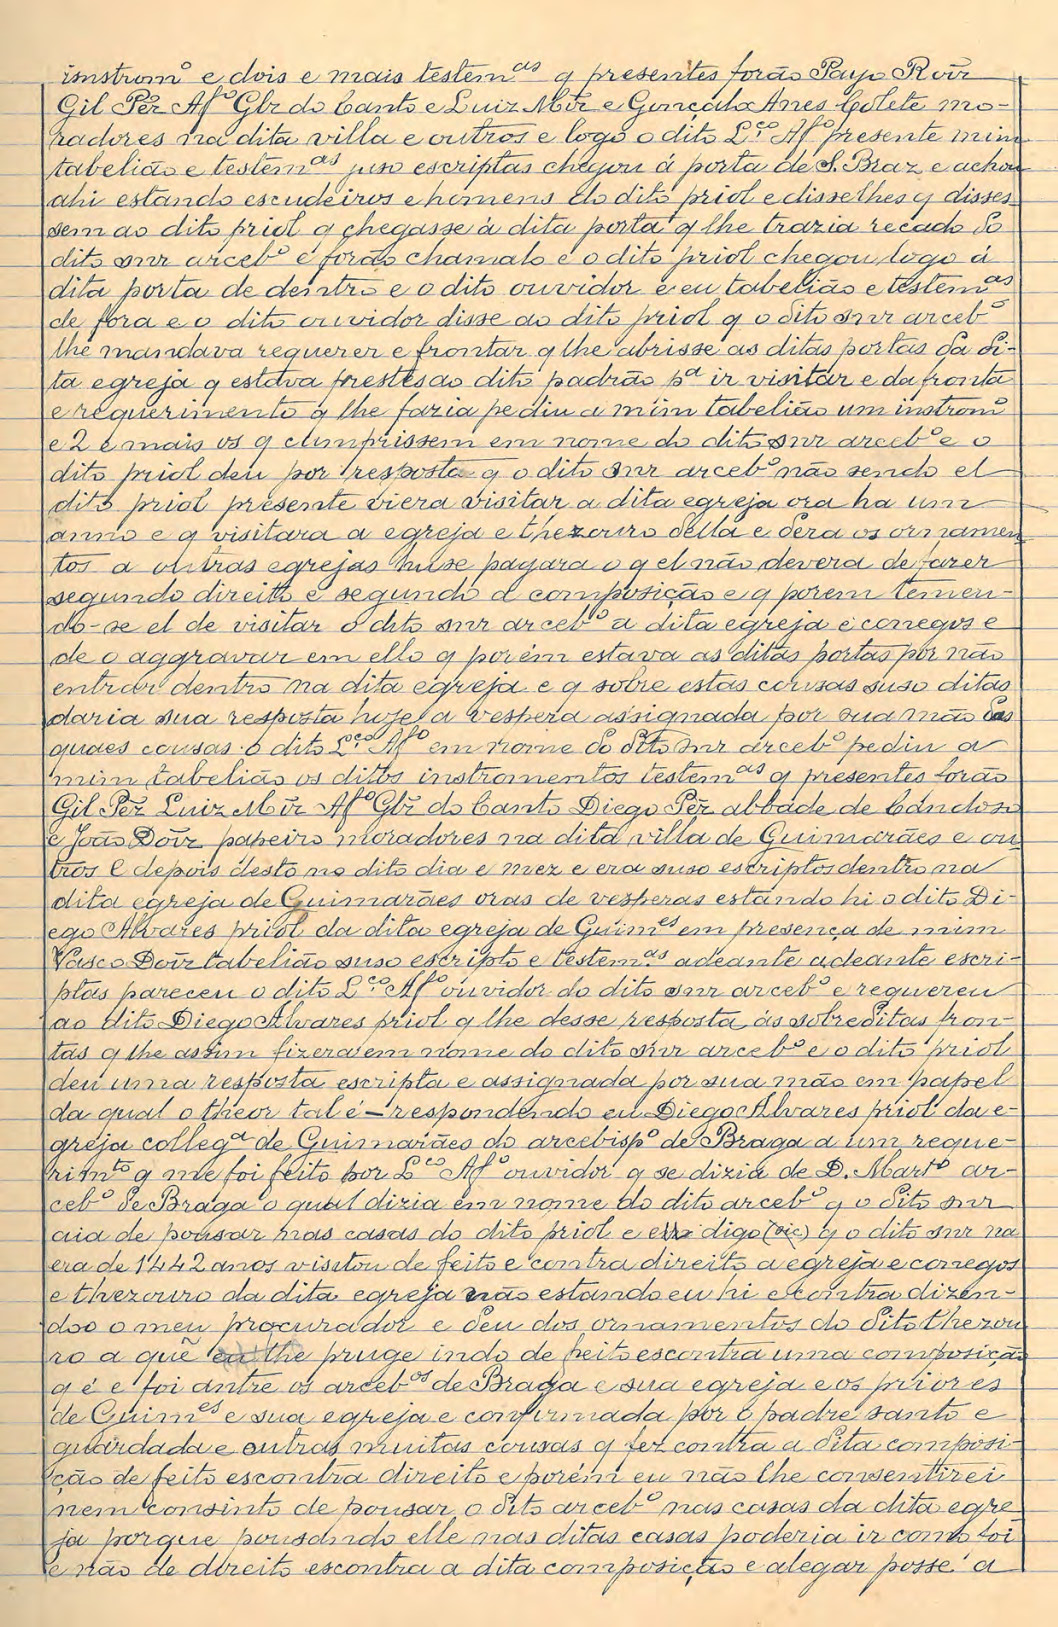 instromº e dois e mais testemᵃˢ q presentes forão Payo Roiz
Gil Pẽz Afº Glz do Canto e Luiz Miz e Gonçalo Anes Colete mo-
radores na dita villa e outros e logo o dito Lᶜº Afº presente mim
tabelião e testemᵃˢ juso escriptas chegou á porta de S. Braz e achou
ahi estando escudeiros e homens do dito priol e disselhes q disses-
sem ao dito priol q chegasse á dita porta q lhe trazia recado do
dito snr arcebº e forão chamalo e o dito priol chegou logo á
dita porta de dentro e o dito ouvidor e eu tabelião e testemᵃˢ
de fora e o dito ouvidor disse ao dito priol q o dito snr arcebº
lhe mandava requerer e frontar q lhe abrisse as ditas portas da di-
ta egreja q estava prestes ao dito padrão pᵃ ir visitar e da fronta
e requerimento q lhe fazia pediu a mim tabelião um instromº
e 2 e mais os q cumprissem em nome do dito snr arcebº e o
dito priol deu por resposta q o dito snr arcebº não sendo el
dito priol presente viera visitar a dita egreja ora ha um
anno e q visitara a egreja e thezouro della e dera os ornamen
tos a outras egrejas huse pagara o q el não devera de fazer
segundo direito e segundo a composição e q porem temen-
do-se el de visitar o dito snr arcebº a dita egreja e conegos e
de o aggravar em ello q porém estava as ditas portas por não
entrar dentro na dita egreja e q sobre estas cousas suso ditas
daria sua resposta hoje a vespera assignada por sua mão das
quaes cousas o dito Lᶜº Afº em nome do dito snr arcebº pediu a
mim tabelião os ditos instromentos testemᵃˢ q presentes forão
Gil Pẽz Luiz Miz Afº Glz do Canto Diego Pẽz abbade de Candoso
e João Doiz papeiro moradores na dita villa de Guimarães e ou
tros E depois desto no dito dia e mez e era suso escriptos dentro na
dita egreja de Guimarães oras de vesperas estando hi o dito Di-
ego Alvares priol da dita egreja de Guimᵉˢ em presença de mim
Vasco Doiz tabelião suso escripto e testemᵃˢ adeante adeante escri-
ptas pareceu o dito Lᶜº Afº ouvidor do dito snr arcebº e requereu
ao dito Diego Alvares priol q lhe desse resposta ás sobreditas fron-
tas q lhe assim fizera em nome do dito snr arcebº e o dito priol
deu uma resposta escripta e assignada por sua mão em papel
da qual o theor tal é – respondendo eu Diego Alvares priol da e-
greja collegᵃ de Guimarães do arcebispº de Braga a um reque-
rimᵗº q me foi feito por Lᶜº Afº ouvidor q se dizia de D. Martº ar-
cebº de Braga o qual dizia em nome do dito arcebº q o dito snr
aia de pousar nas casas do dito priol e digo (sic) q o dito snr na
era de 1442 anos visitou de feito e contra direito a egreja e conegos
e thezouro da dita egreja não estando eu hi e contra dizen-
doo o meu procurador e deu dos ornamentos do dito thezou
ro a quẽ lhe pruge indo de feito escontra uma composição
q é e foi antre os arcebºˢ de Braga e sua egreja e os priores
de Guimᵉˢ e sua egreja e confirmada por o padre santo e
guardada e outras muitas cousas q fez contra a dita composi-
ção de feito escontra direito e porém eu não lhe consentirei
nem consinto de pousar o dito arcebº nas casas da dita egre
ja porque pousando elle nas ditas casas poderia ir como foi
e não de direito escontra a dita composição e alegar posse a